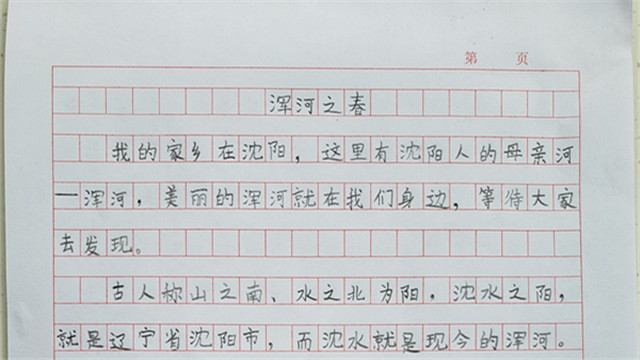 第 页
浑河之春
我的家乡在沈阳，这里有沈阳人的母亲河
—浑河，美丽的浑河就在我们身边，等待大家
去发现。
古人称山之南、水之北为阳，沈水之阳，
就是辽宁省沈阳市，而沈水就是现今的浑河。